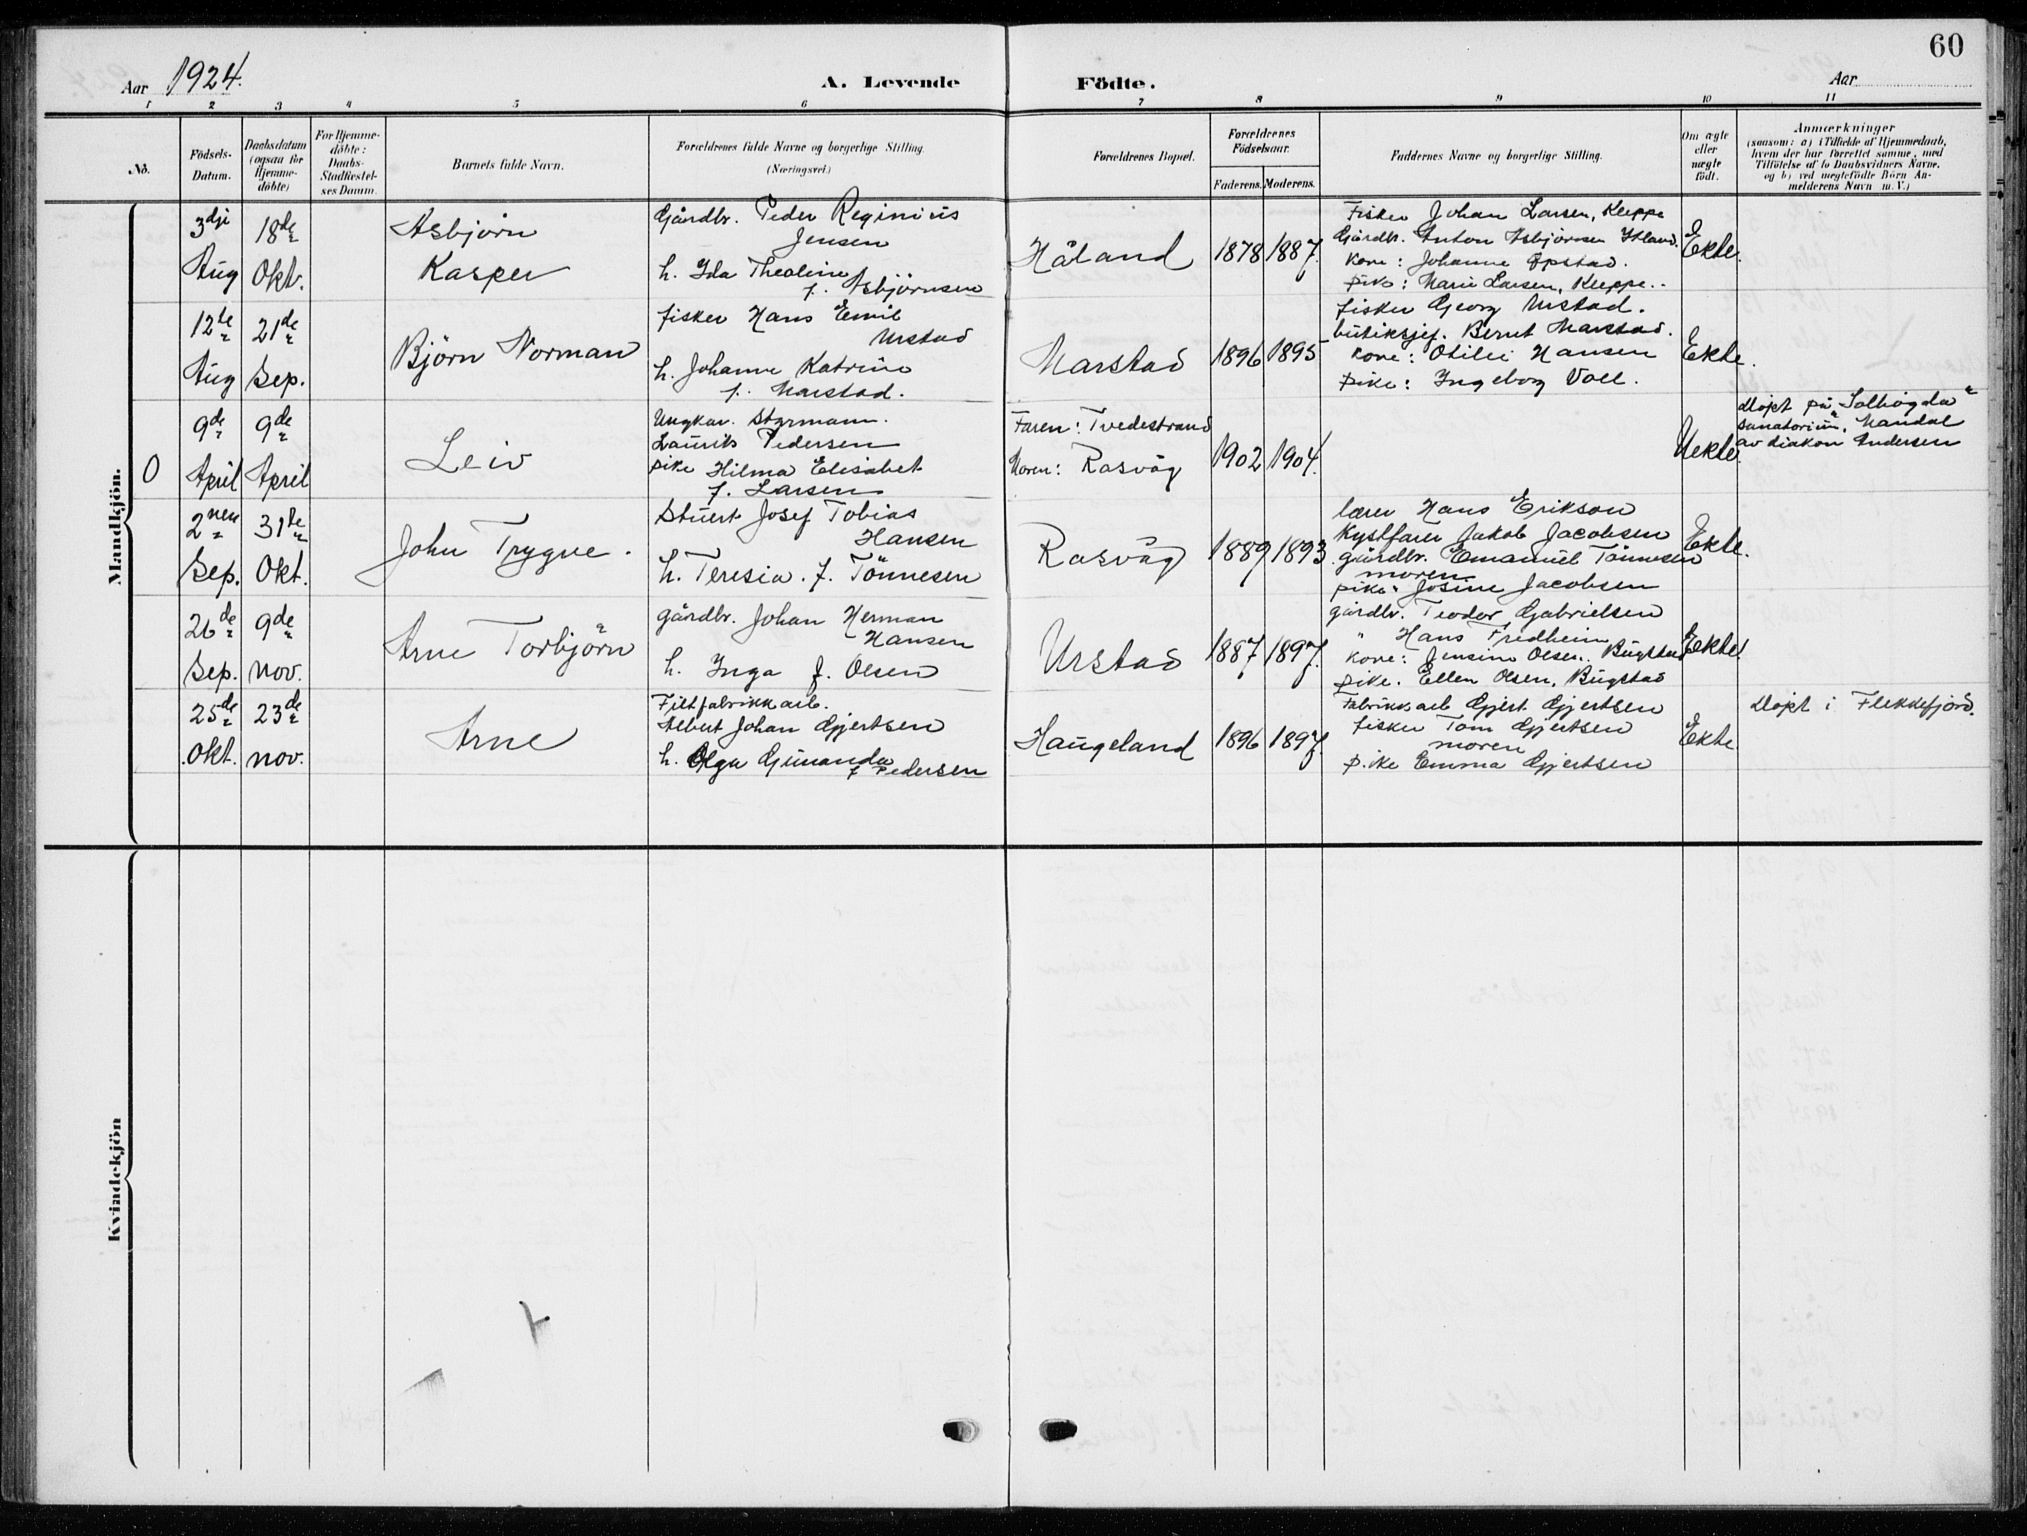 60
Aar 1924.
A. Levende Födte.
Aar
1 2 3 4 5 6 7 8 9 10 11
No.
Födsels-Datum.
Daabsdatum (ogsaa for Hjemme-döbte)
For Hjemme-döbte: Daabs-Stadfæstel-ses Datum.
Barnets fulde Navn.
Forældrenes fulde Navne og borgerlige Stilling. (Næringsvei.)
Forældrenes Bopæl.
Forældrenes Födselsaar.
Faderens. Moderens.
Faddernes Navne og borgerlige Stilling.
Om ægte eller uægte födt.
Anmærkninger
(saasom: a) i Tilfælde af Hjemmedaab,
hvem der har forrettet samme, med
Tilföielse af to Daabsvidners Navne.
og b) ved uegtefödte Börn An-
melderens Navn m. V.)
Mandkjön.
3dje Aug
18de Okt.
Asbjørn
Kasper
Gårdbr. Peder Reginius
Jensen
h. Ida Theoline
f. Asbjörnsen
Håland
1878 1887.
Fisker Johan Larsen, Kleppe
Gårdbr. Anton Asbjörnsen
Kone: Johanne Opstad.
pike: Marie Larsen, Kleppe.
Ekte.
12te Aug
21de Sep.
Björn Norman
fisker Hans Emil
Urstad
h. Johanne Katrine
f. Marstad.
Marstad
1896 1895
fisker Georg Urstad.
butiksjef. Bernt Marstad.
Kone: Otilie Hansen
pike: Ingeborg Voll.
Ekte.
0
9de April
9de April
Leiv
Ungkar. Styrmann.
Laurits Pedersen
pike Hilma Elisabet
f. Larsen
Faren: Tvedestrand
Moren: Rasvåg
1902 1904.
Uekte.
Döpt på "Solhögda"
sanatorium, Mandal
av diakon Andersen
2nen Sep.
31te Okt.
John Trygve.
Stuert Josef Tobias
Hansen
h. Teresia. f. Tönnesen
Rasvåg
1889 1893.
lærer Hans Erikson
Kystfarer Jakob Jacobsen
gårdbr. Emanuel Tönnesen
moren
pike: Josine Jacobsen
Ekte.
26de Sep.
9de nov.
Arne Torbjörn
gårdbr. Johan Herman
Hansen
h. Inga f. Olsen
Urstad
1887 1897.
gårdbr. Teodor Gabrielsen
" Hans Fredheim
Kone: Jensine Olsen. Bugstad
pike. Ellen Olsen, Bugstad
Ekte.
25de Okt.
23de nov.
Arne
Filtfabrikkarb.
Albert Johan Gjertsen
h. Olga Gunanda
f Pedersen
Haugeland
1896 1897.
Fabrikkarb Gjert Gjertsen
fisker Tom Gjertsen
moren
pike Emma Gjertsen
Ekte
Döpt i Flekkefjord.
Kvindekjön